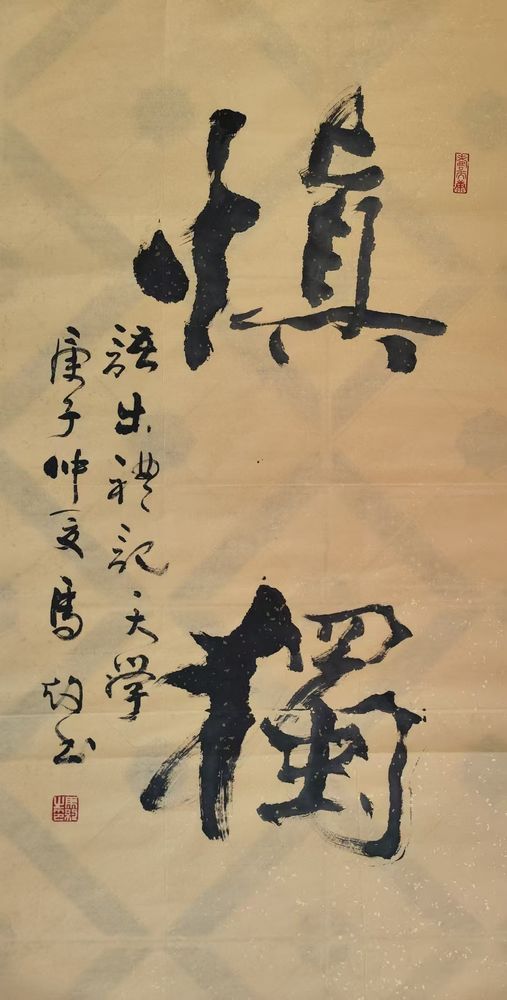 慎獨
語出禮記大學
庚子仲夏馬均书